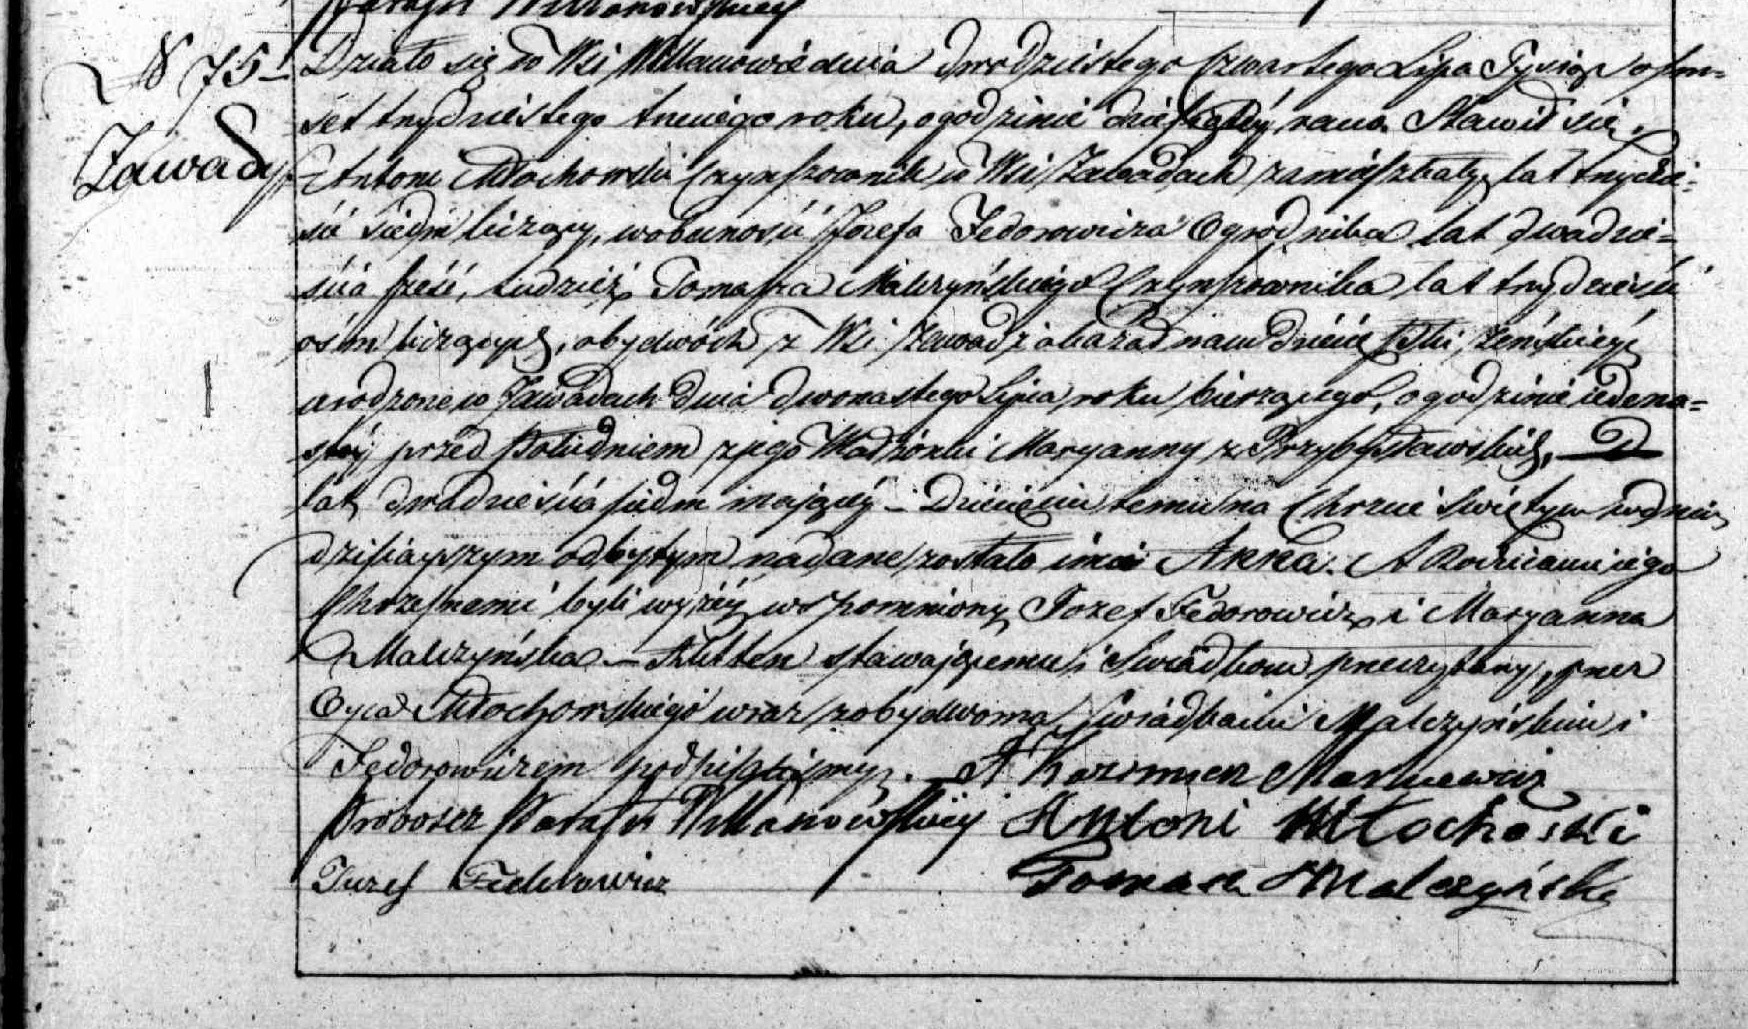 Parafii Willanowskiey
N 75
Zawady
Działo się w Wsi Willanowie dnia dwudziestego czwartego Lipca Tysiąc osm-
set trzydziestego trzeciego roku, o godzinie dziesiątey rano. Stawił się
Antoni Włochowski Czynszownik w Wsi Zawadach zamieszkały lat trzydzie-
ści siedm liczący, w obecności Józefa Fedorowicza Ogrodnika lat dwadzie-
ścia sześć, tudzież Tomasza Malczyńskiego Czynszownika lat trzydzieści
ośm liczących, obydwóch z Wsi Zawad i okazał nam dziécię płci żeńskiéy
urodzone w Zawadach dnia dwonastego Lipca roku bieżącego, o godzinie iedena-
stéy przed Południem z jego Małżonki Maryanny z Przybysławskich,
lat dwadzieścia siedm maiącéy – Dziecięciu temu na Chrzcie świętym w dniu
dzisiayszym odbytym nadane zostało imie Anna. A Rodzicami jego
Chrzesnemi byli wyżéy wspomniony Jozef Fedorowicz i Maryanna
Malczyńska – Akt ten stawaiącemu i Świadkom przeczytany, przez
Oyca Włochowskiego wraz z obydwoma Świadkami Malczyńskim i
Fedorowiczem podpisaliśmy. X Kazimierz
Proboszcz Parafii Willanowskiéy Antoni Włochoski
Juzef Fedorowicz Tomasz Malczyński